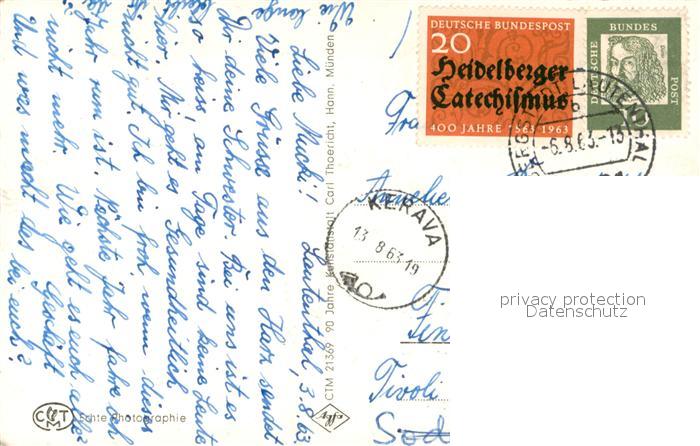 Lautenthal, 3.8.63
Liebe Mucki!
Viele Grüsse aus dem Harz sendet
Dir deine Schwester. Bei uns ist es
so heiss, am Tage sind keine Leute
hier. Mir geht es Gesundheitlich
nicht gut. Ich bin froh wenn dieses
Jahr rum ist. Nächste Jahr fahre ich
nicht mehr. Wie geht es euch alle?
Und was macht das Geschäft
bei euch?
Wie lange
bleibt
CTM 21369 90 Jahre Kunstanstalt Carl Thoericht, Hann. Münden
Echte Photographie
CTM
Agfa
DEUTSCHE BUNDESPOST
20
Heidelberger
Catechismus
400 JAHRE 1563 1963
DEUTSCHE
BUNDES
POST
10
-6.8.63.-13
KERAVA
13.8.63.19
Tivoli
privacy protection
Datenschutz